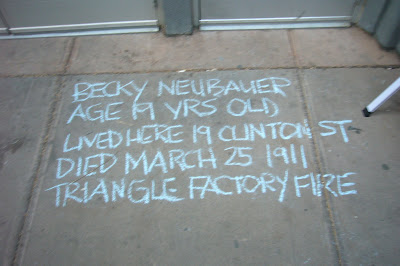 BECKY NEUBAUER
AGE 19 YRS OLD
LIVED HERE 19 CLINTON ST
DIED MARCH 25 1911
TRIANGLE FACTORY FIRE